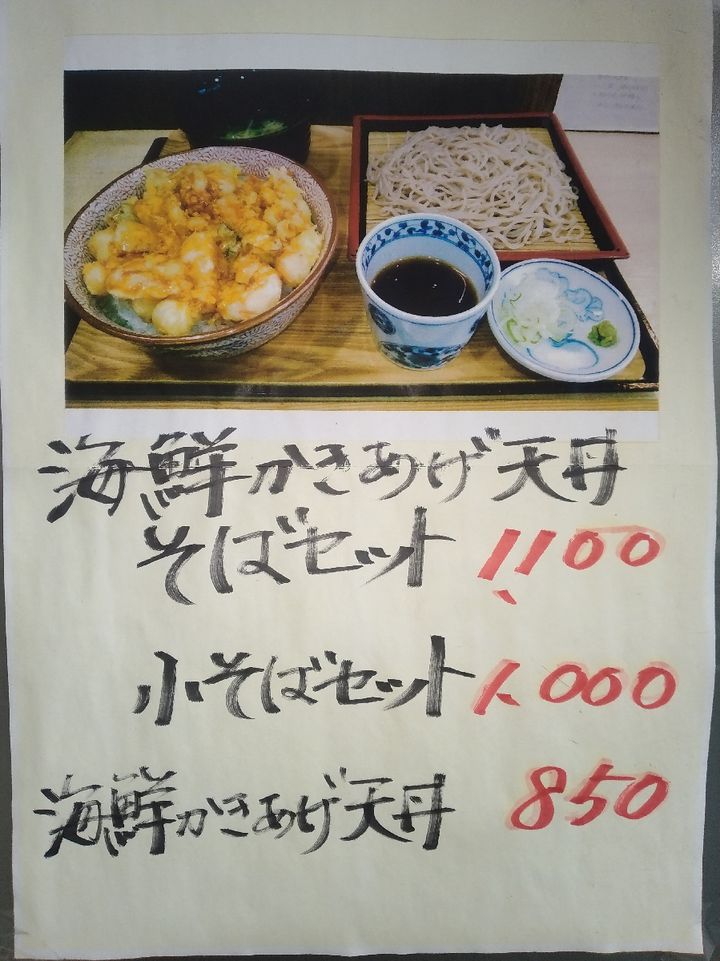 海鮮かきあげ天丼
そばセット 1,100
小そばセット 1,000
海鮮かきあげ天丼 850